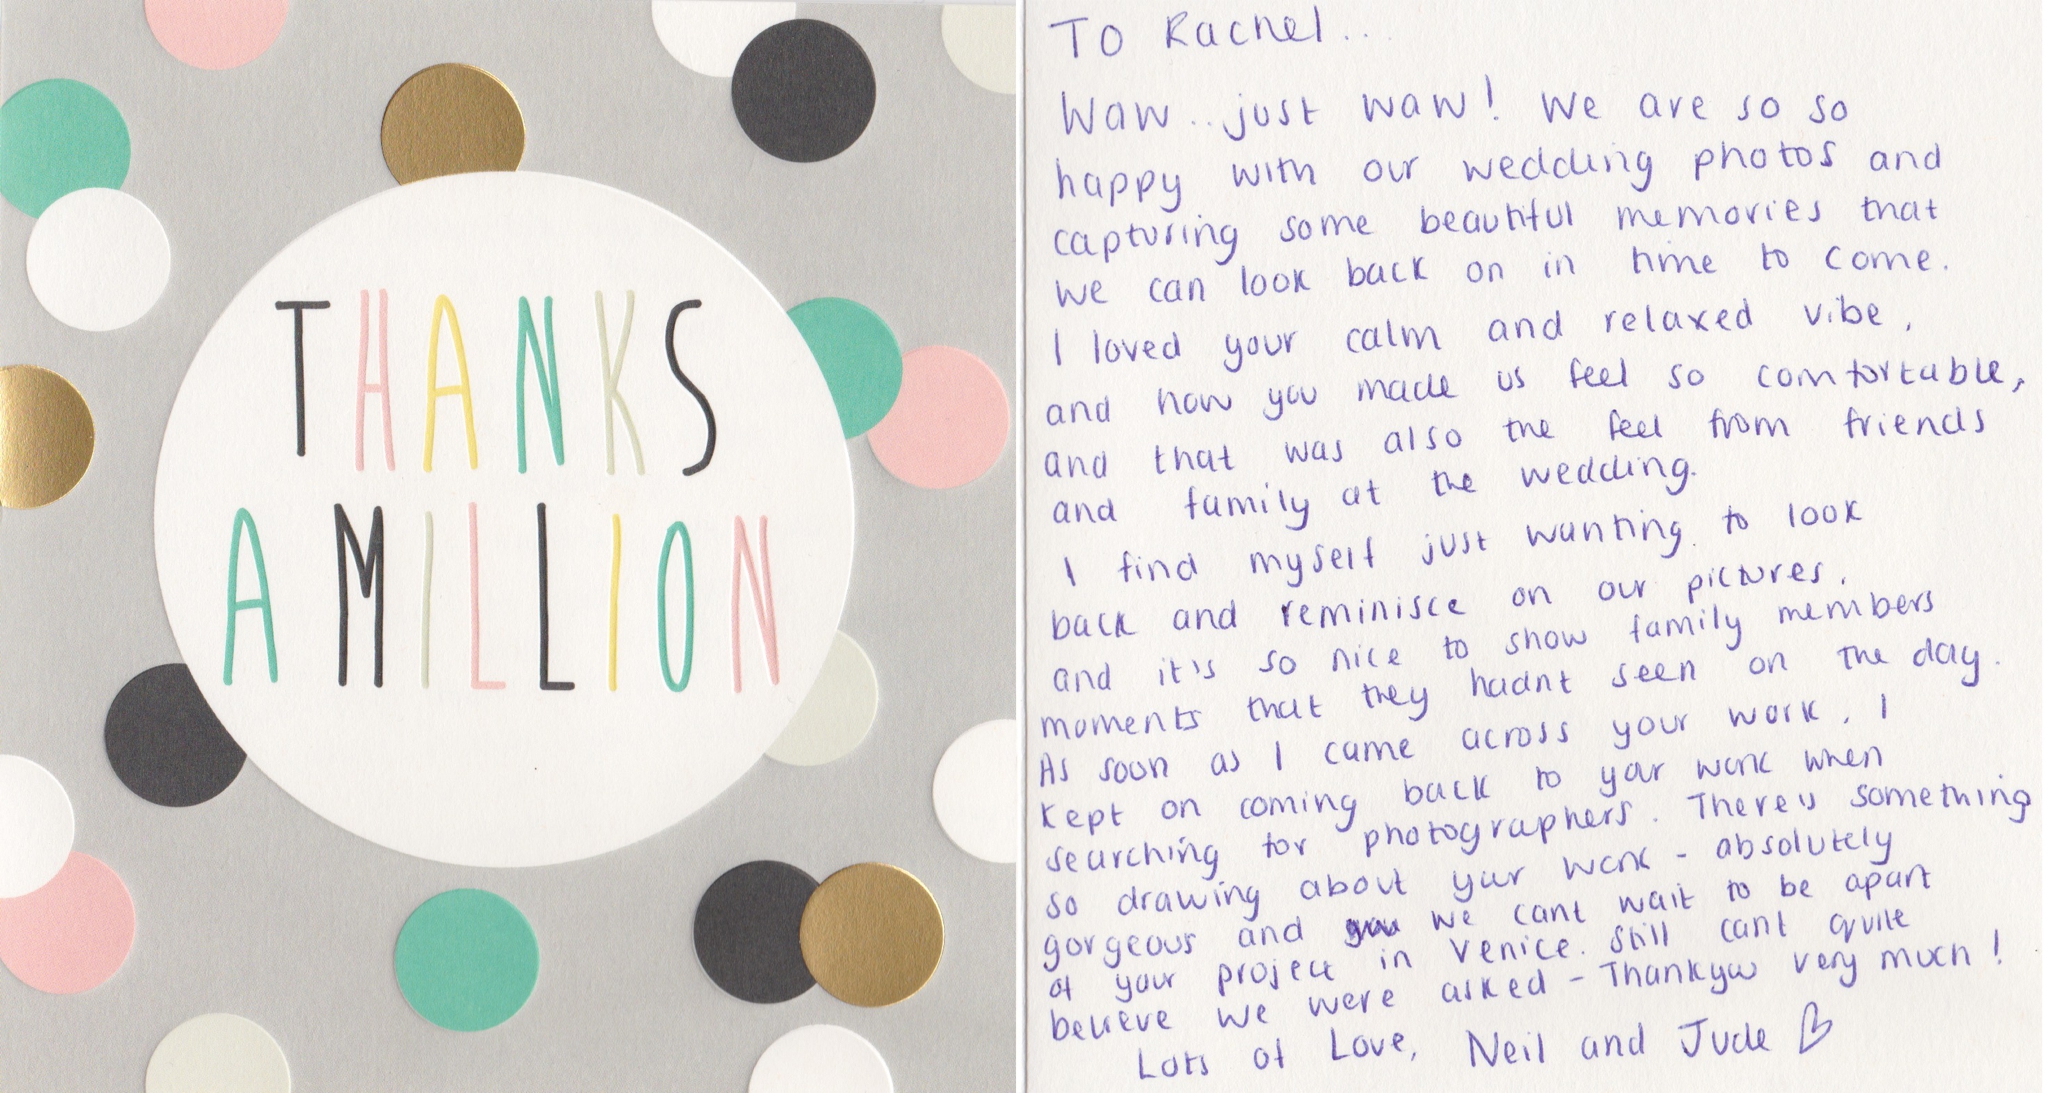 THANKS
A MILLION
To Rachel...
Waw.. just waw! We are so so
happy with our wedding photos and
capturing some beautiful memories that
we can look back on in time to come.
I loved your calm and relaxed vibe,
and how you made us feel so comfortable,
and that was also the feel from friends
and family at the wedding.
I find myself just wanting to look
back and reminisce on our pictures,
and it's so nice to show family members
moments that they hadnt seen on the day.
As soon as I came across your work, I
kept on coming back to your work when
searching for photographers. There is something
so drawing about your work - absolutely
gorgeous and we cant wait to be apart
of your project in Venice. Still cant quite
believe we were asked - Thankyou very much!
Lots of Love, Neil and Jude